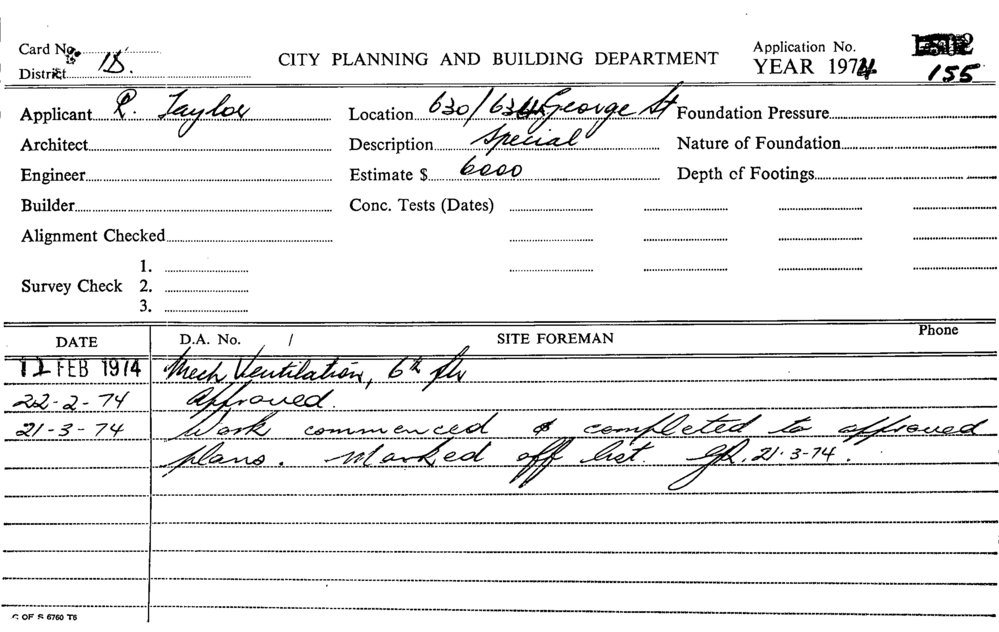 Card No.
District 1B.
CITY PLANNING AND BUILDING DEPARTMENT
Application No.
YEAR 1974
155
Applicant Taylor
Location 630/634 George St
Foundation Pressure
Architect
Description Special
Nature of Foundation
Engineer
Estimate $ 6000
Depth of Footings
Builder
Conc. Tests (Dates)
Alignment Checked
Survey Check
1.
2.
3.
DATE
D.A. No. /
SITE FOREMAN
Phone
12 FEB 1974 Mech Ventilation, 6th flr
22-2-74 Approved.
21-3-74 Work commenced & completed to approved
plans. Marked off list. 21.3-74.
C OF S 6760 T6